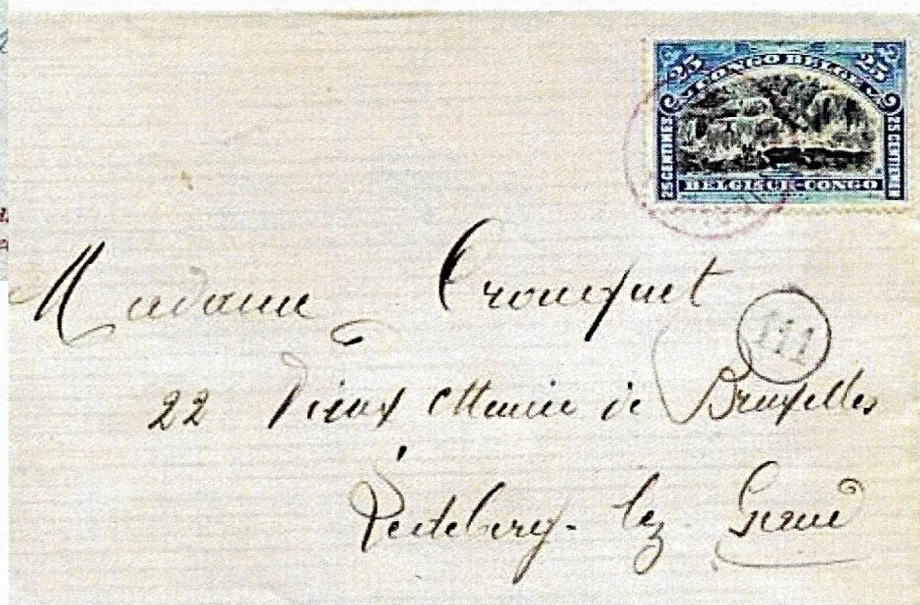 25 25
CONGO BELGE
25 CENTIMES
25 CENTIEMEN
BELGISCH-CONGO
Madame Crouquet
111
22 Vieux de Bruxelles
Ledeberg-lez-Gand